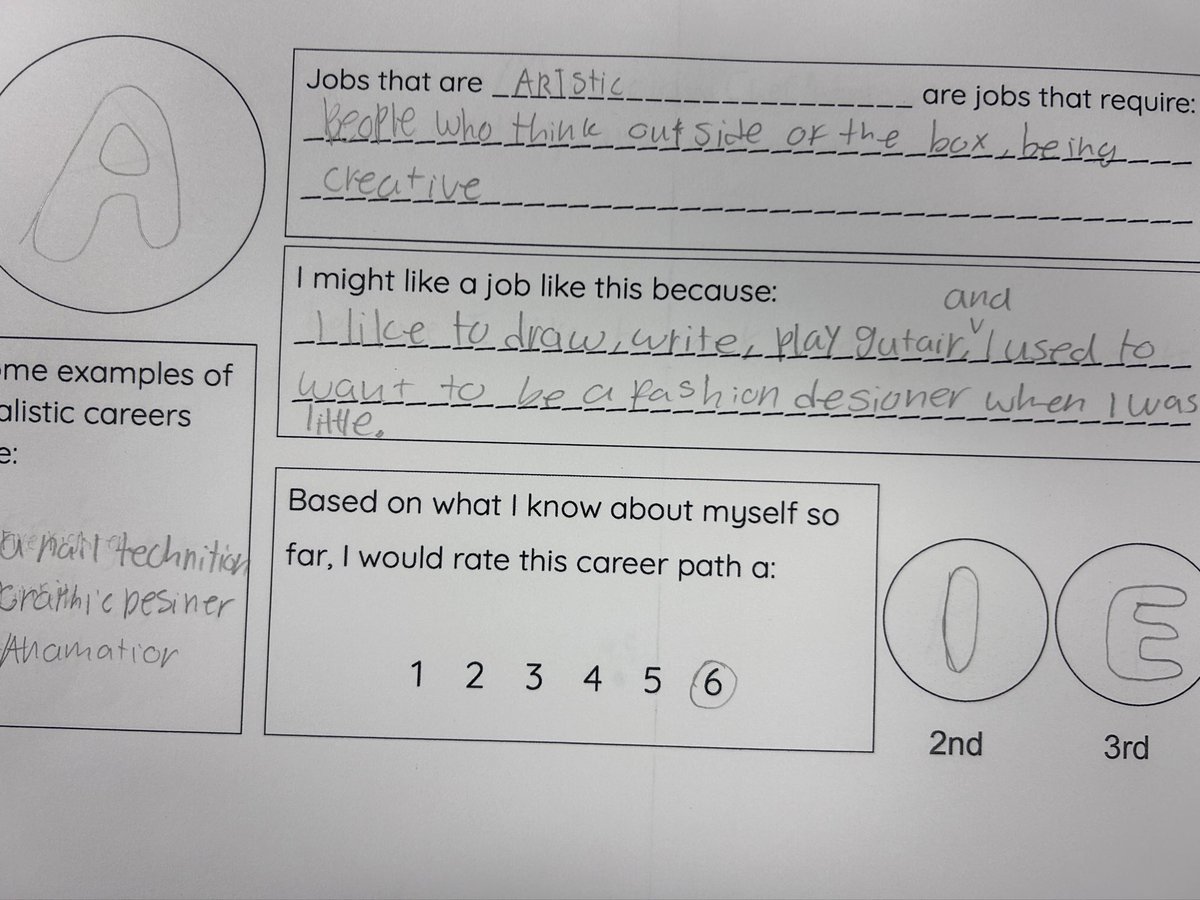 A
Jobs that are ARIStic are jobs that require:
People who think outside of the box, being
creative
I might like a job like this because:
and
I like to draw, write, play gutair, I used to
want to be a fashion desioner when I was
little.
me examples of
alistic careers
e:
a nail technition
Graphic Desiner
Anamatior
Based on what I know about myself so
far, I would rate this career path a:
1 2 3 4 5 6
I E
2nd 3rd